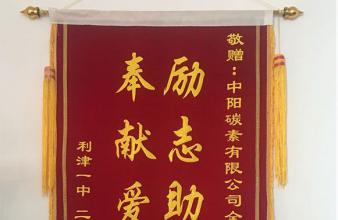 敬赠：中阳碳素有限公司全
励志助
奉献爱
利津一中 二